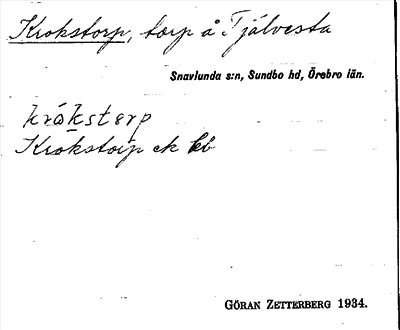 Krokstorp, torp å Tjälvesta
Snavlunda s:n, Sundbo hd, Örebro län.
kråkstorp
Krokstorp ek kb
GÖRAN ZETTERBERG 1934.